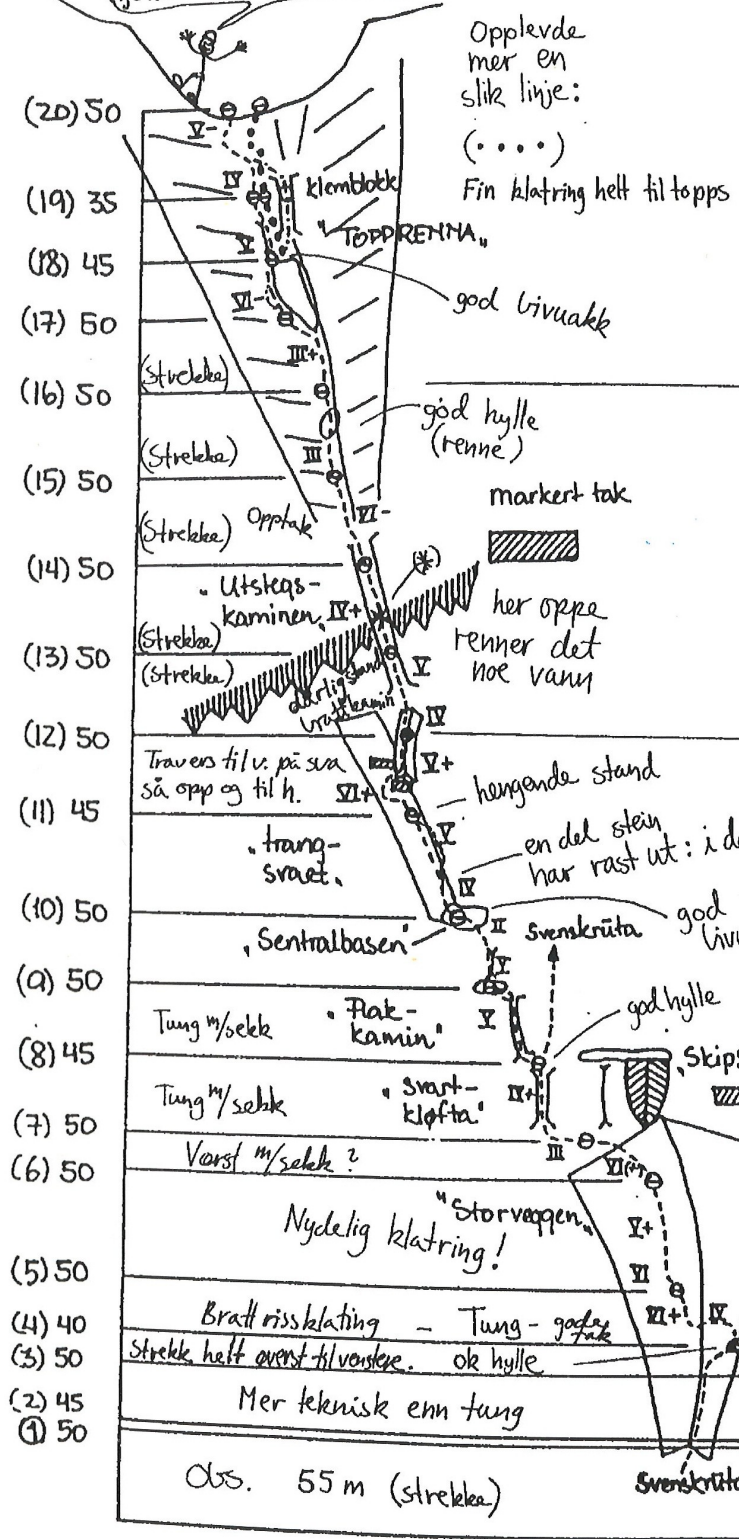 Opplevde
mer en
slik linje:
(• • • •)
Fin klatring helt til topps
(20) 50
V-
IV
klemblokk
(19) 35
"TOPPRENNA"
V
(18) 45
god bivuakk
VI-
(17) 50
III+
(Strekke)
(16) 50
god hylle
(renne)
III
(Strekke)
(15) 50
markert tak
VI-
(Strekke) Opptak
(14) 50
(*)
"Utstegs-
kaminen"
IV+
her oppe
renner det
noe vann
(Strekke)
(13) 50
(Strekke)
V
dårlig stand
bratt kamin
IV
(12) 50
Travers til v. på sva
så opp og til h.
V+
VI+
hengende stand
(11) 45
V
"trang-
svaet"
en del stein
har rast ut: i
IV
(10) 50
god
II
"Sentralbasen"
Svenskrúta
V
(9) 50
V
"Flak-
kamin"
Tung m/sekk
god hylle
(8) 45
"Skips
Tung m/sekk
"svart-
kløfta"
IV+
(7) 50
III
Værst m/sekk?
VI(+)
(6) 50
"Storveggen"
Nydelig klatring!
V+
VI
(5) 50
VI+
IV
Bratt rissklating - Tung - gode
tak
(4) 40
Strekk helt øverst til venstere. ok hylle
(3) 50
Mer teknisk enn tung
(2) 45
(1) 50
Obs. 55 m (strekke)
Svenskrúta